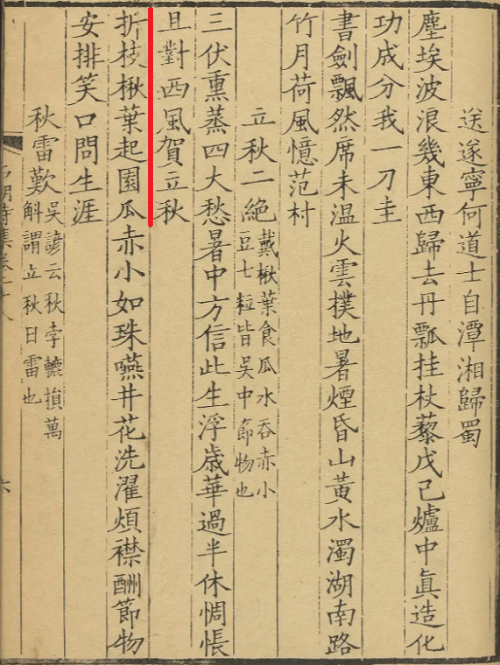 送遂寧何道士自潭湘歸蜀
塵埃波浪幾東西歸去丹瓢挂杖藜戊己爐中眞造化
功成分我一刀圭
書劍飄然席未温火雲撲地暑煙昏山黃水濁湖南路
竹月荷風憶范村
立秋二絶戴楸葉食瓜水吞赤小
豆七粒皆吳中節物也
三伏熏蒸四大愁暑中方信此生浮歳華過半休惆悵
且對西風賀立秋
折枝楸葉起園瓜赤小如珠嚥井花洗濯煩襟酬節物
安排笑口問生涯
秋雷歎吳諺云秋孛轆損萬
斛謂立秋日雷也
石湖詩集卷二十八
六